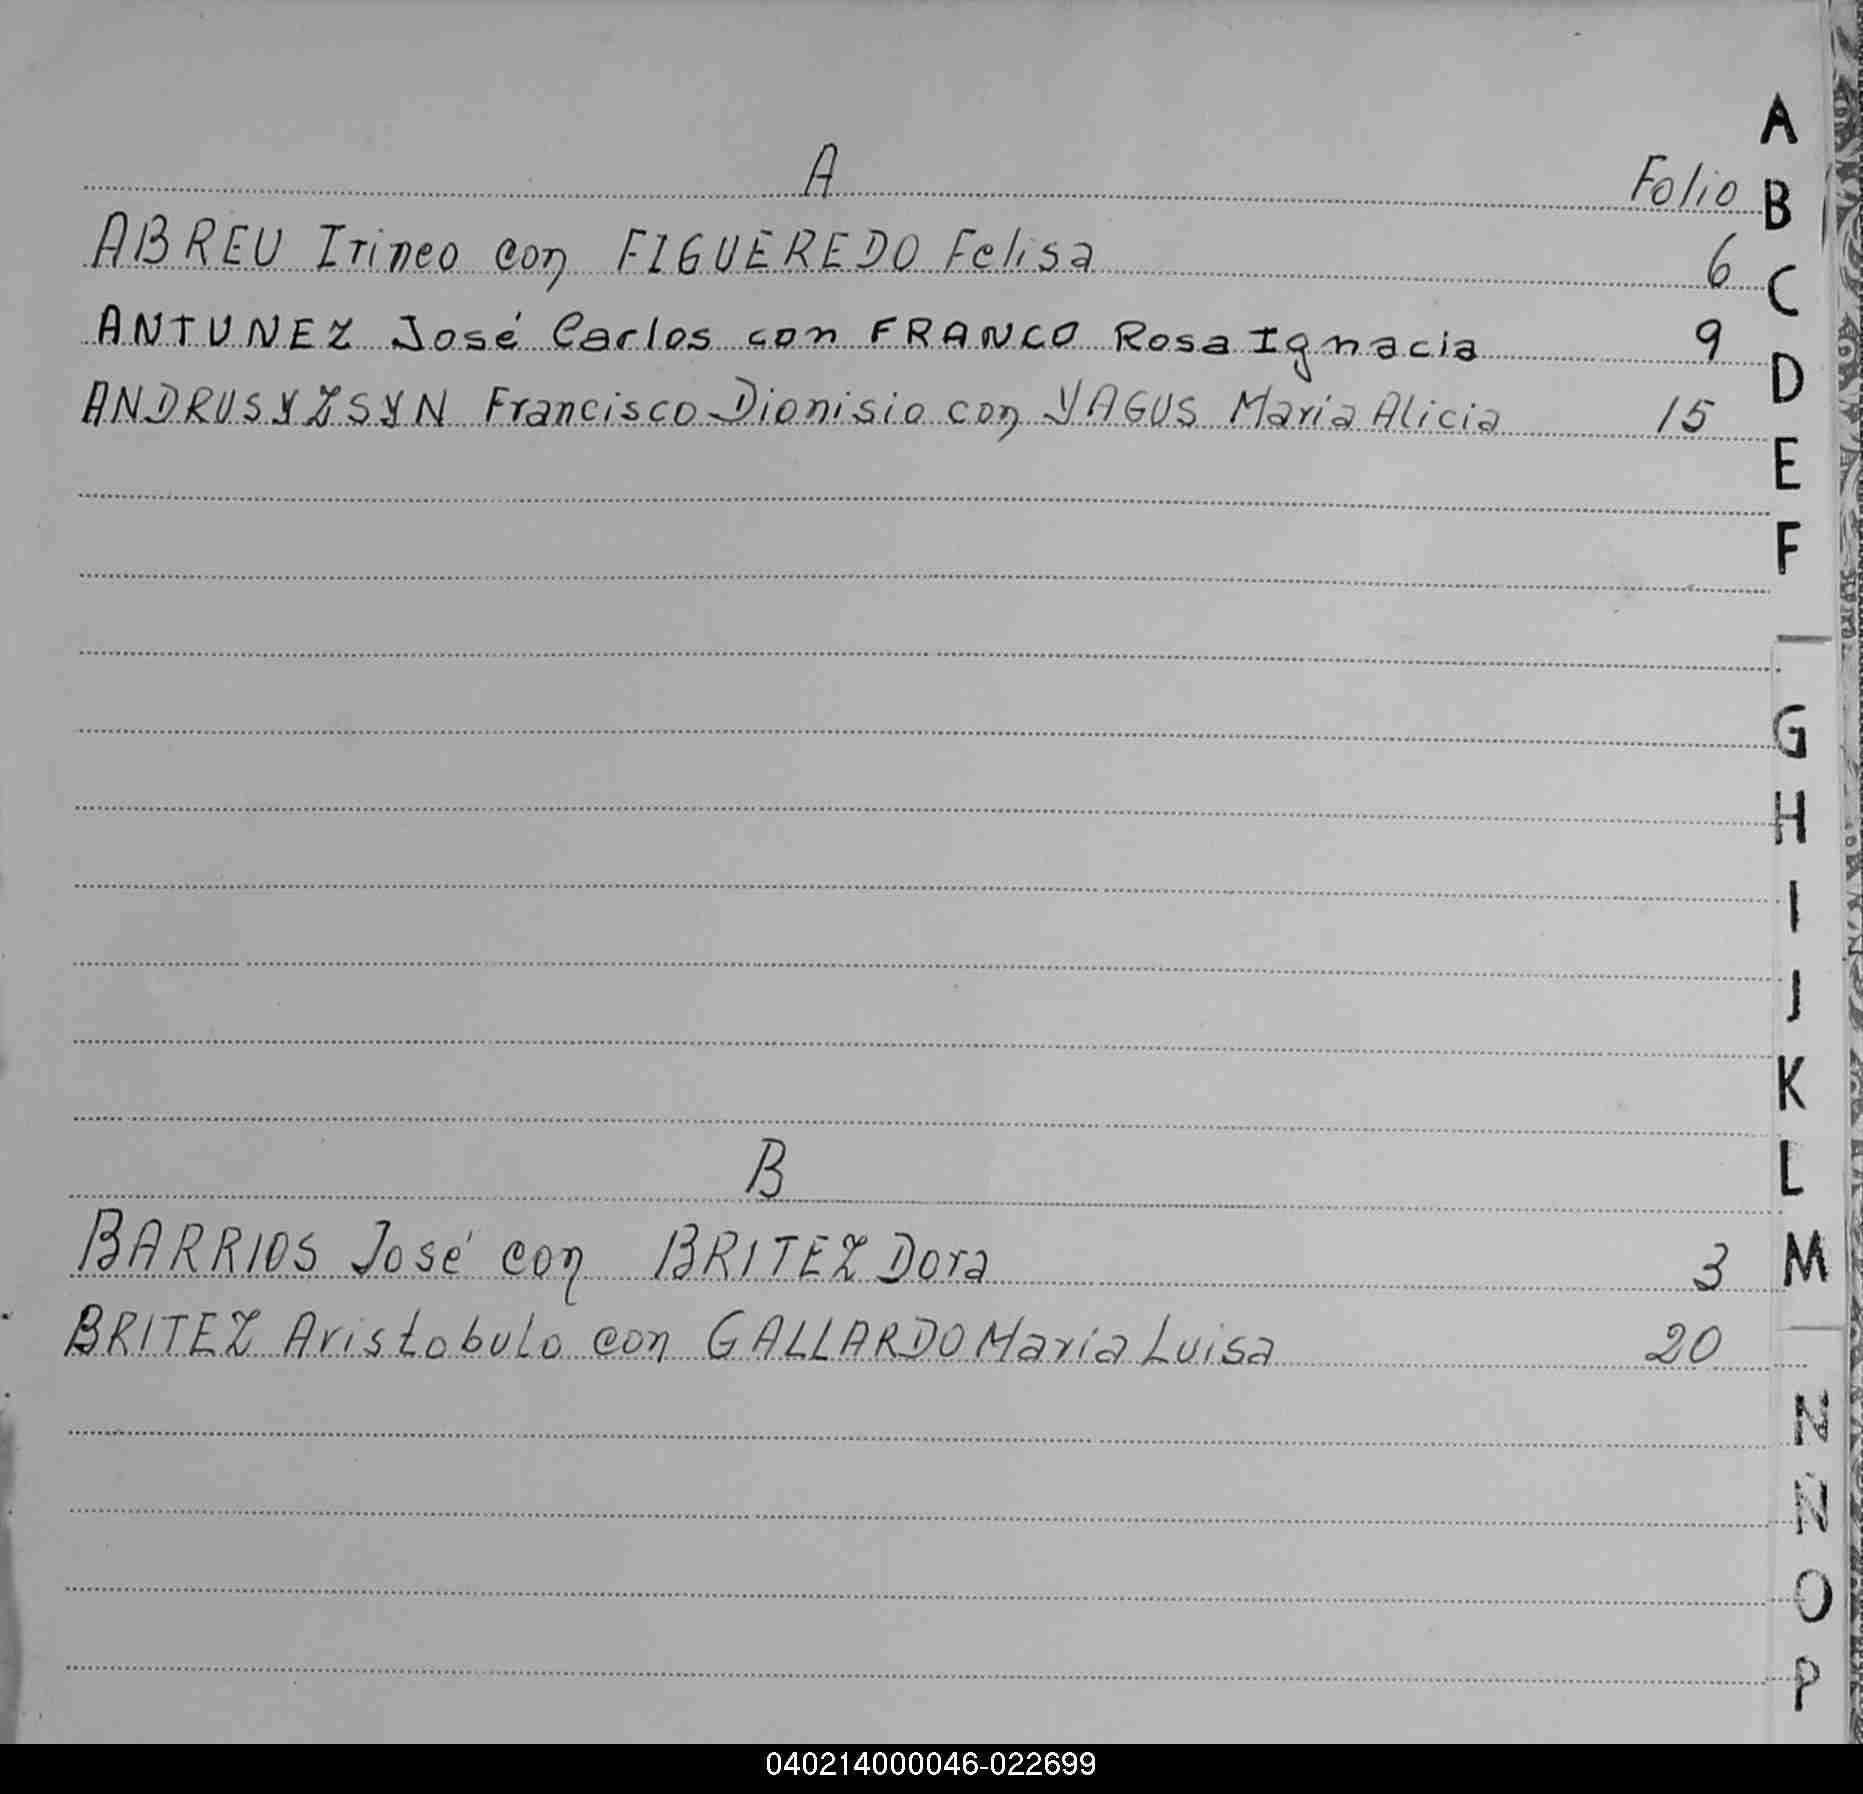 A
Folio
ABREU Irineo con FIGUEREDO Felisa 6
ANTUNEZ José Carlos con FRANCO Rosa Ignacia 9
ANDRUSYZSYN Francisco Dionisio con YAGUS María Alicia 15
B
BARRIOS José con BRITEZ Dora 3
BRITEZ Aristobulo con GALLARDO María Luisa 20
A
B
C
D
E
F
G
H
I
J
K
L
M
N
N
O
P
040214000046-022699